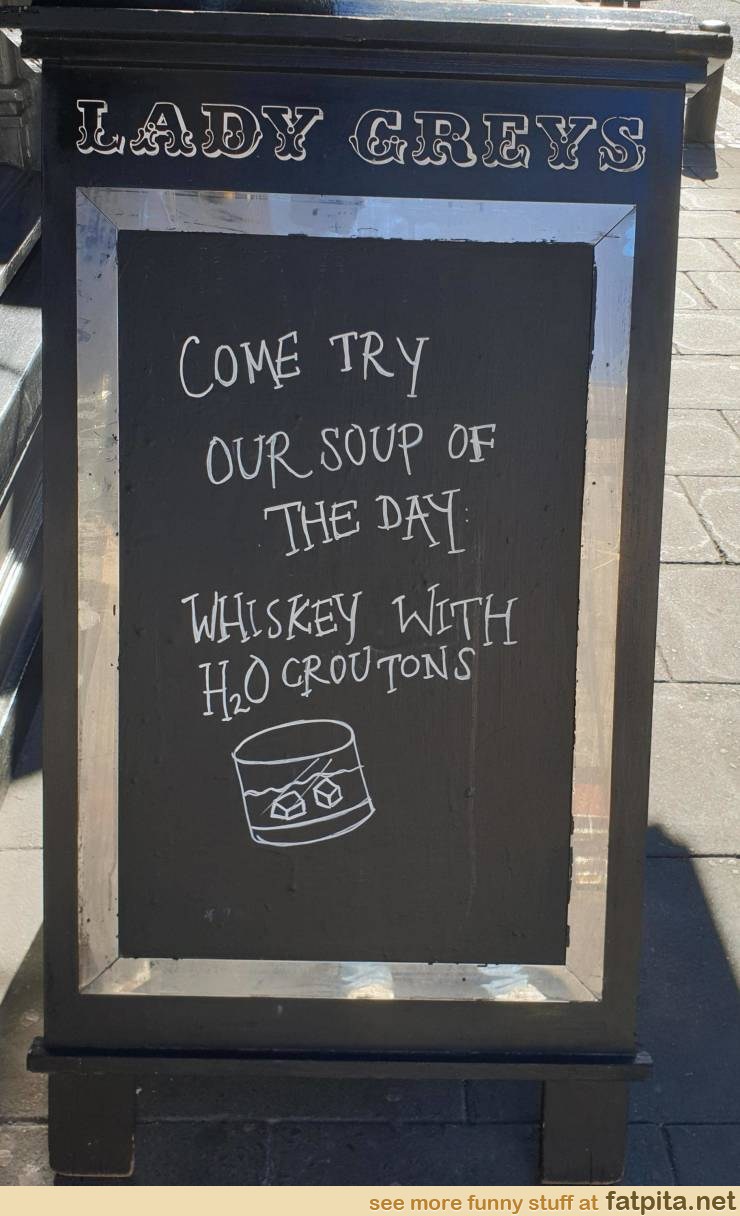 LADY GREYS
COME TRY
OUR SOUP OF
THE DAY:
WHISKEY WITH
H₂O CROUTONS
see more funny stuff at fatpita.net